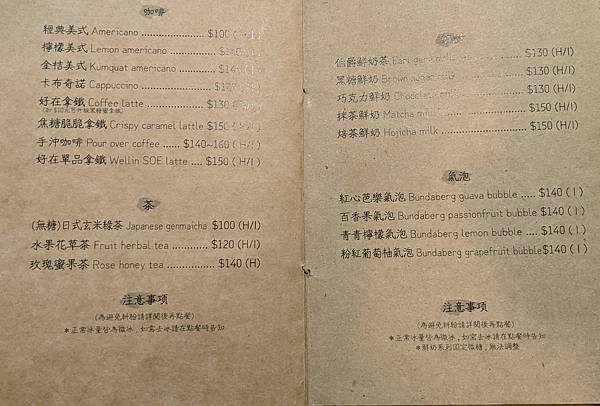 咖啡
經典美式 Americano ............ $100 (H/I)
檸檬美式 Lemon americano
金桔美式 Kumquat americano
卡布奇諾 Cappuccino
好在拿鐵 Coffee latte ............ $130
焦糖脆脆拿鐵 Crispy caramel lattle $150
手沖咖啡 Pour over coffee ...... $140~160 (H/I)
好在單品拿鐵 Wellin SOE latte .... $150 (H/I)
茶
(無糖)日式玄米綠茶 Japanese genmaicha $100 (H/I)
水果花草茶 Fruit herbal tea ............ $120 (H/I)
玫瑰蜜果茶 Rose honey tea ............ $140 (H)
注意事項
(為避免糾紛請詳閱後再點餐)
*正常冰量皆為微冰,如需去冰請在點餐時告知
伯爵鮮奶茶 Earl $130 (H/I)
黑糖鮮奶 Brown sugar milk $130 (H/I)
巧克力鮮奶 $130 (H/I)
抹茶鮮奶 Matcha milk ............ $150 (H/I)
焙茶鮮奶 Hojicha milk ............ $150 (H/I)
氣泡
紅心芭樂氣泡 Bundaberg guava bubble ..... $140 ( I )
百香果氣泡 Bundaberg passionfruit bubble . $140 ( I )
青青檸檬氣泡 Bundaberg lemon bubble .... $140 ( I )
粉紅葡萄柚氣泡 Bundaberg grapefruit bubble$140 ( I )
注意事項
(為避免糾紛請詳閱後再點餐)
*正常冰量皆為微冰,如需去冰請在點餐時告知
*鮮奶系列固定微糖,無法調整